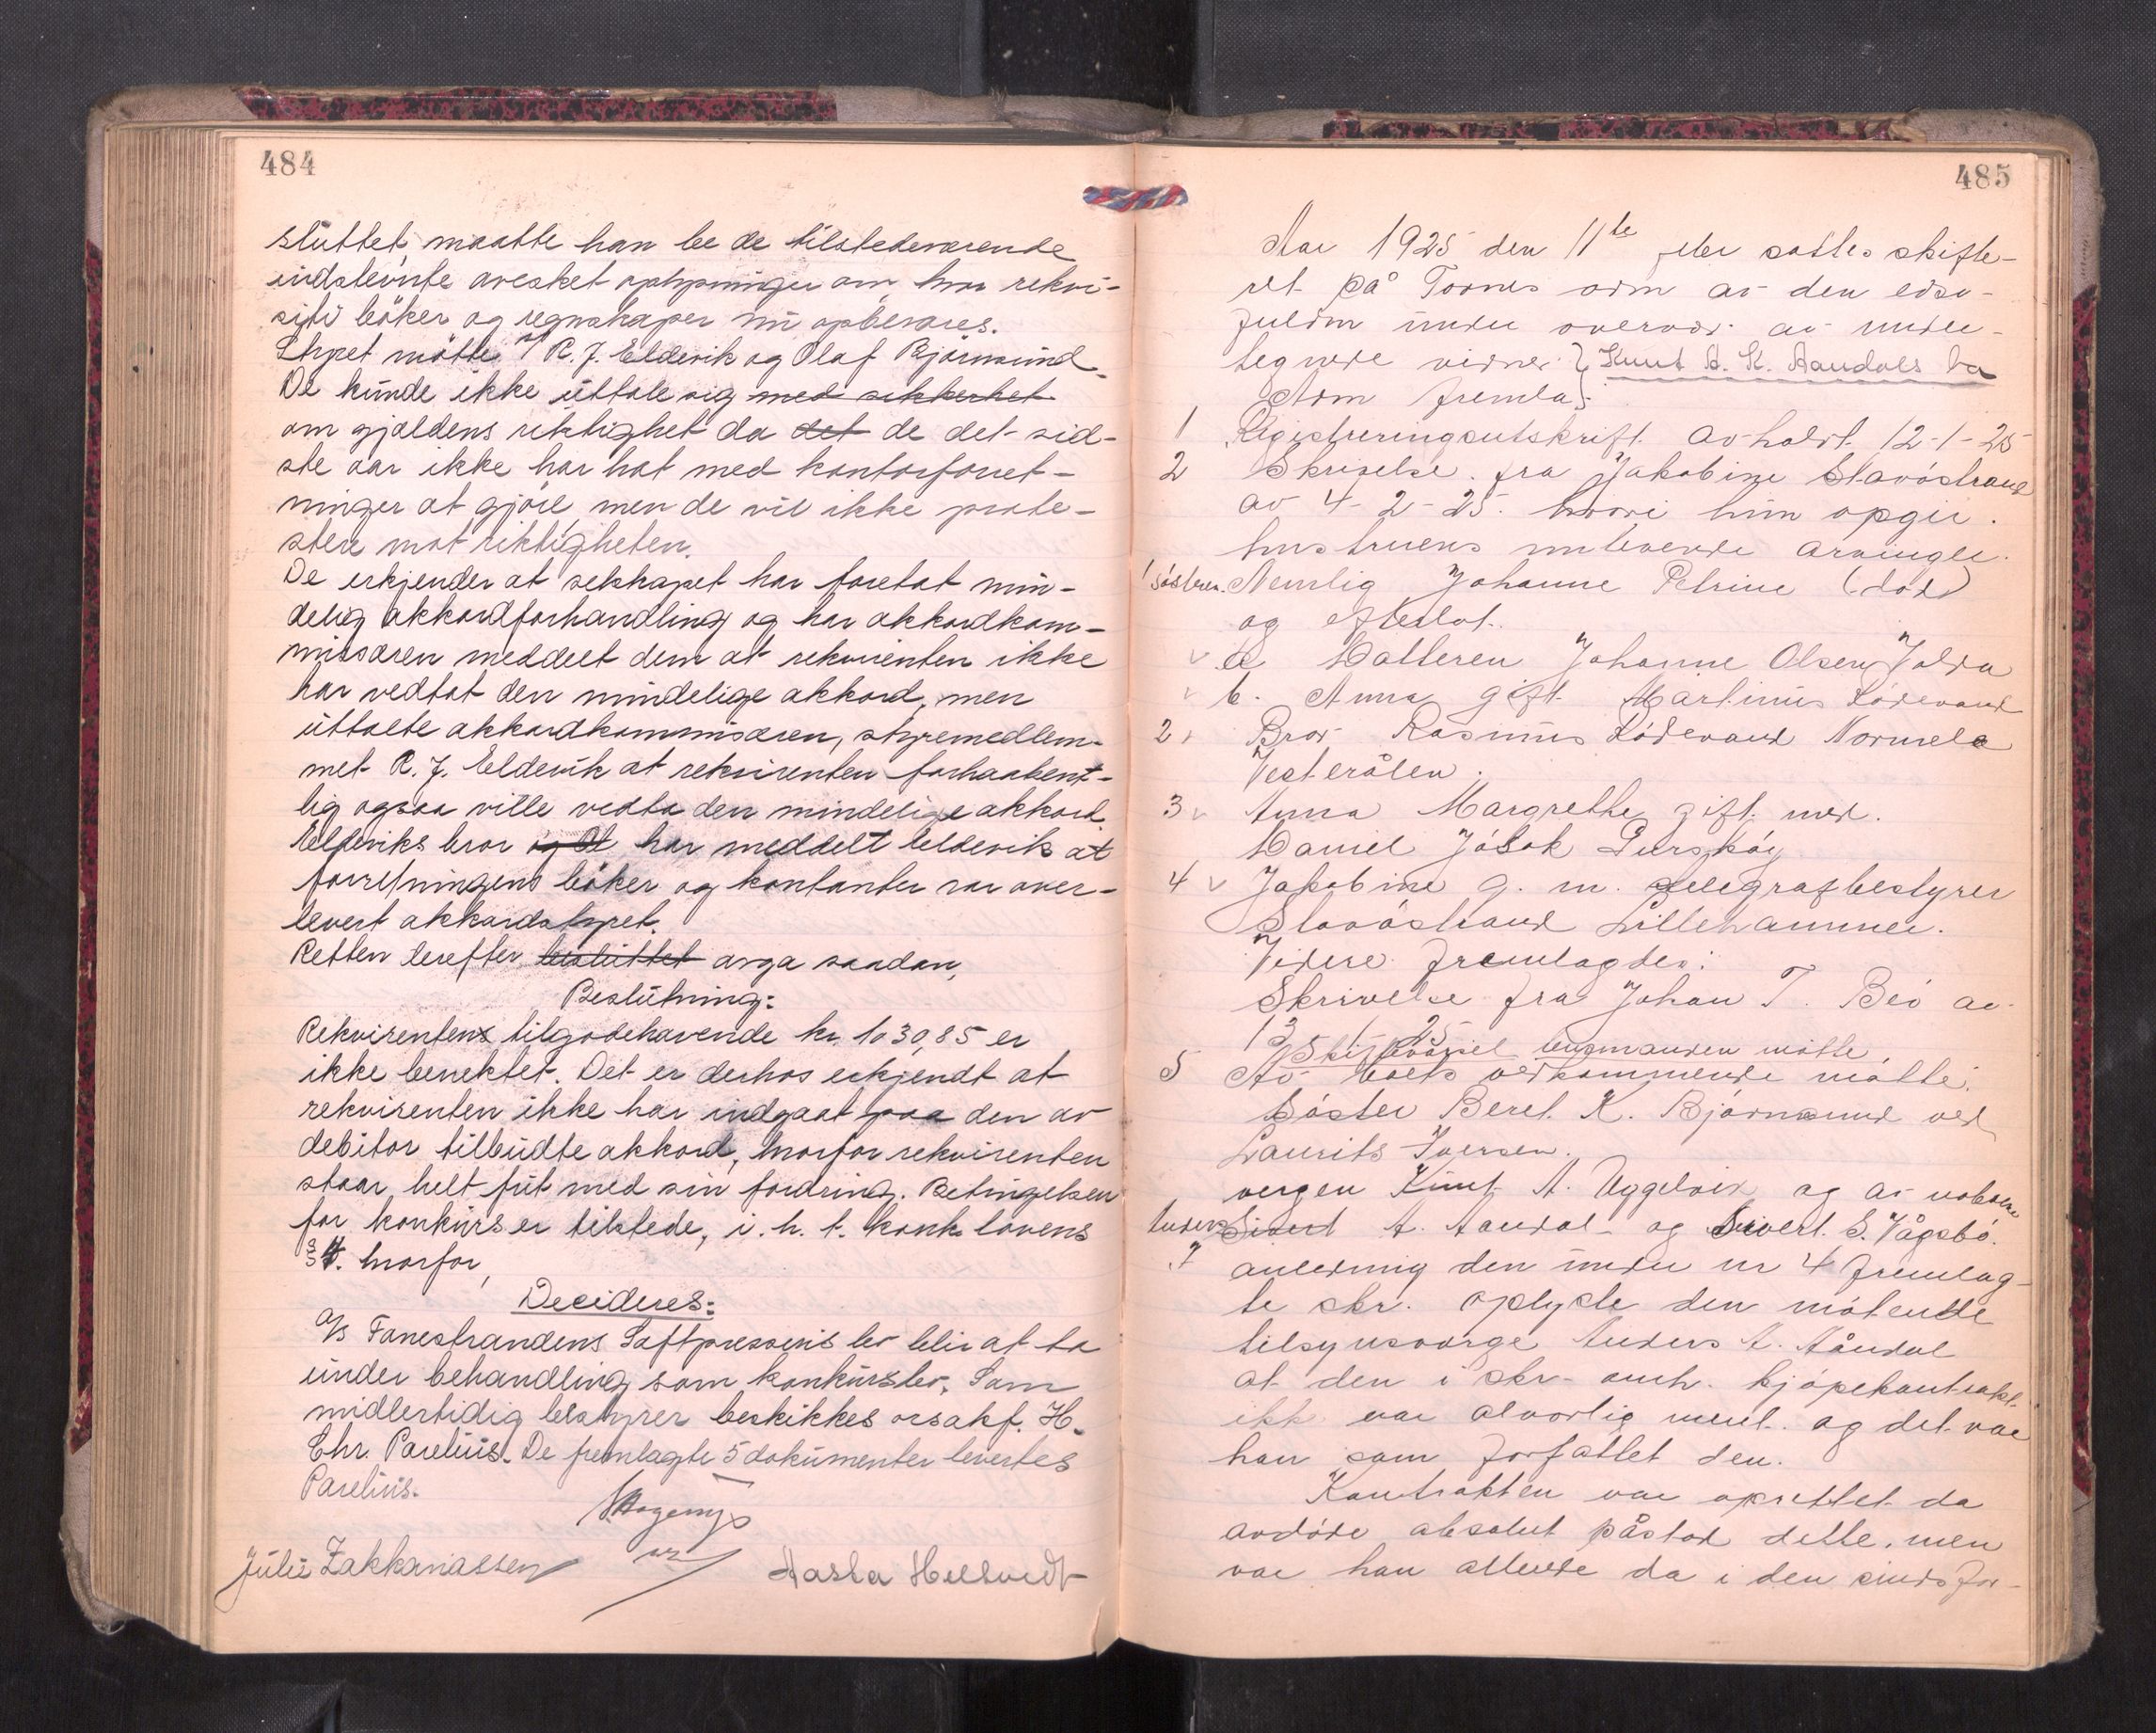 484
sluttet, maatte han be de tilstedeværende
indstevnte avesket oplysninger om hvor rekvi-
siti böker og regnskaper nu opbevares.
Styret mötte ved R. J. Eldevik og Olaf Björnsund.
De kunde ikke uttale sig med sikkerhet
om gjældens riktighet da det de det sid-
ste aar ikke har hat med kontorforret-
ninger at gjöre men de vil ikke prote-
stere mot riktigheten.
De erkjender at selskapet har foretat min-
delig akkordforhandling og har akkordkom-
missæren meddelt dem at rekvirenten ikke
har vedtat den mindelige akkord, men
uttalte akkordkommisæren, styremedlem-
met R. J. Eldevik at rekvirenten forhaabent-
lig ogsaa ville vedta den mindelige akkord.
Eldeviks bror har meddelt Eldevik at
forretningens böker og kontanter var over-
levert akkordstyret.
Retten derefter besluttet avga saadan,
Beslutning:
Rekvirentens tilgodehavende kr. 1030,85 er
ikke benektet. Det er derhos erkjendt at
rekvirenten ikke har indgaat paa den av
debitor tilbudte akkord, hvorfor rekvirenten
staar helt frit med sin fordring. Betingelsen
for konkurs er tilstede, i. h. t. konk. lovens
§ 4. hvorfor,
Decideres:
A/s Fanestrandens Saftpresseris bo blir at ta
under behandling som konkursbo. Som
midlertidig bestyrer beskikkes orsakf. H.
Chr. Parelius. De fremlagte 5 dokumenter levertes
Parelius.
Julie Zakkariassen
Aasta Hellvedt
485
Aar 1925 den 11te feber sattes skifte-
ret på Tornes adm av den edsv-
fuldm under overvær av under-
tegnede vidner. } Knut A. K. Aandals bo
Adm fremla:
1 Registreringsutskrift avholdt 12-1-25
2 Skrivelse fra Jakobine Stavöstrand
av 4-2-25. hvori hun opgir.
hustruens utlevende arvinger.
1 söstren. Nemlig Johanne Petrine (död)
og efterlot.
a Datteren Johanne Olsen Jolda
b. Anna gift Martinus Lödevand
2 Bror Rasmus Lödevand Normela
Vesterålen.
3 Anna Margrethe gift med.
Daniel Jósok Gurskøy
4 Jakobine g. m. telegrafbestyrer
Stavöstrand Lillehammer.
Videre fremlagdes:
Skrivelse fra Johan T. Beó av
13 1 25
lensmanden mötte.
5 Av boets vedkommende mötte:
Söster Beret K. Björnsund ved
Laurits Iversen.
vergen Knut A. Uggelvik og av naboene
Anders Sivert A. Aandal og Sivert S. Vågsbö.
I anledning den under nr 4 fremlag-
te skr. oplyste den mötende
tilsynsverge Anders A. Aåndal
at den i skr. omh. kjöpekontrakt
ikke var alvorlig ment. og det var
han som forfattet den.
Kontrakten var oprettet da
avdöde absolut påstod dette, men
var han allerede da i den sindsfor-